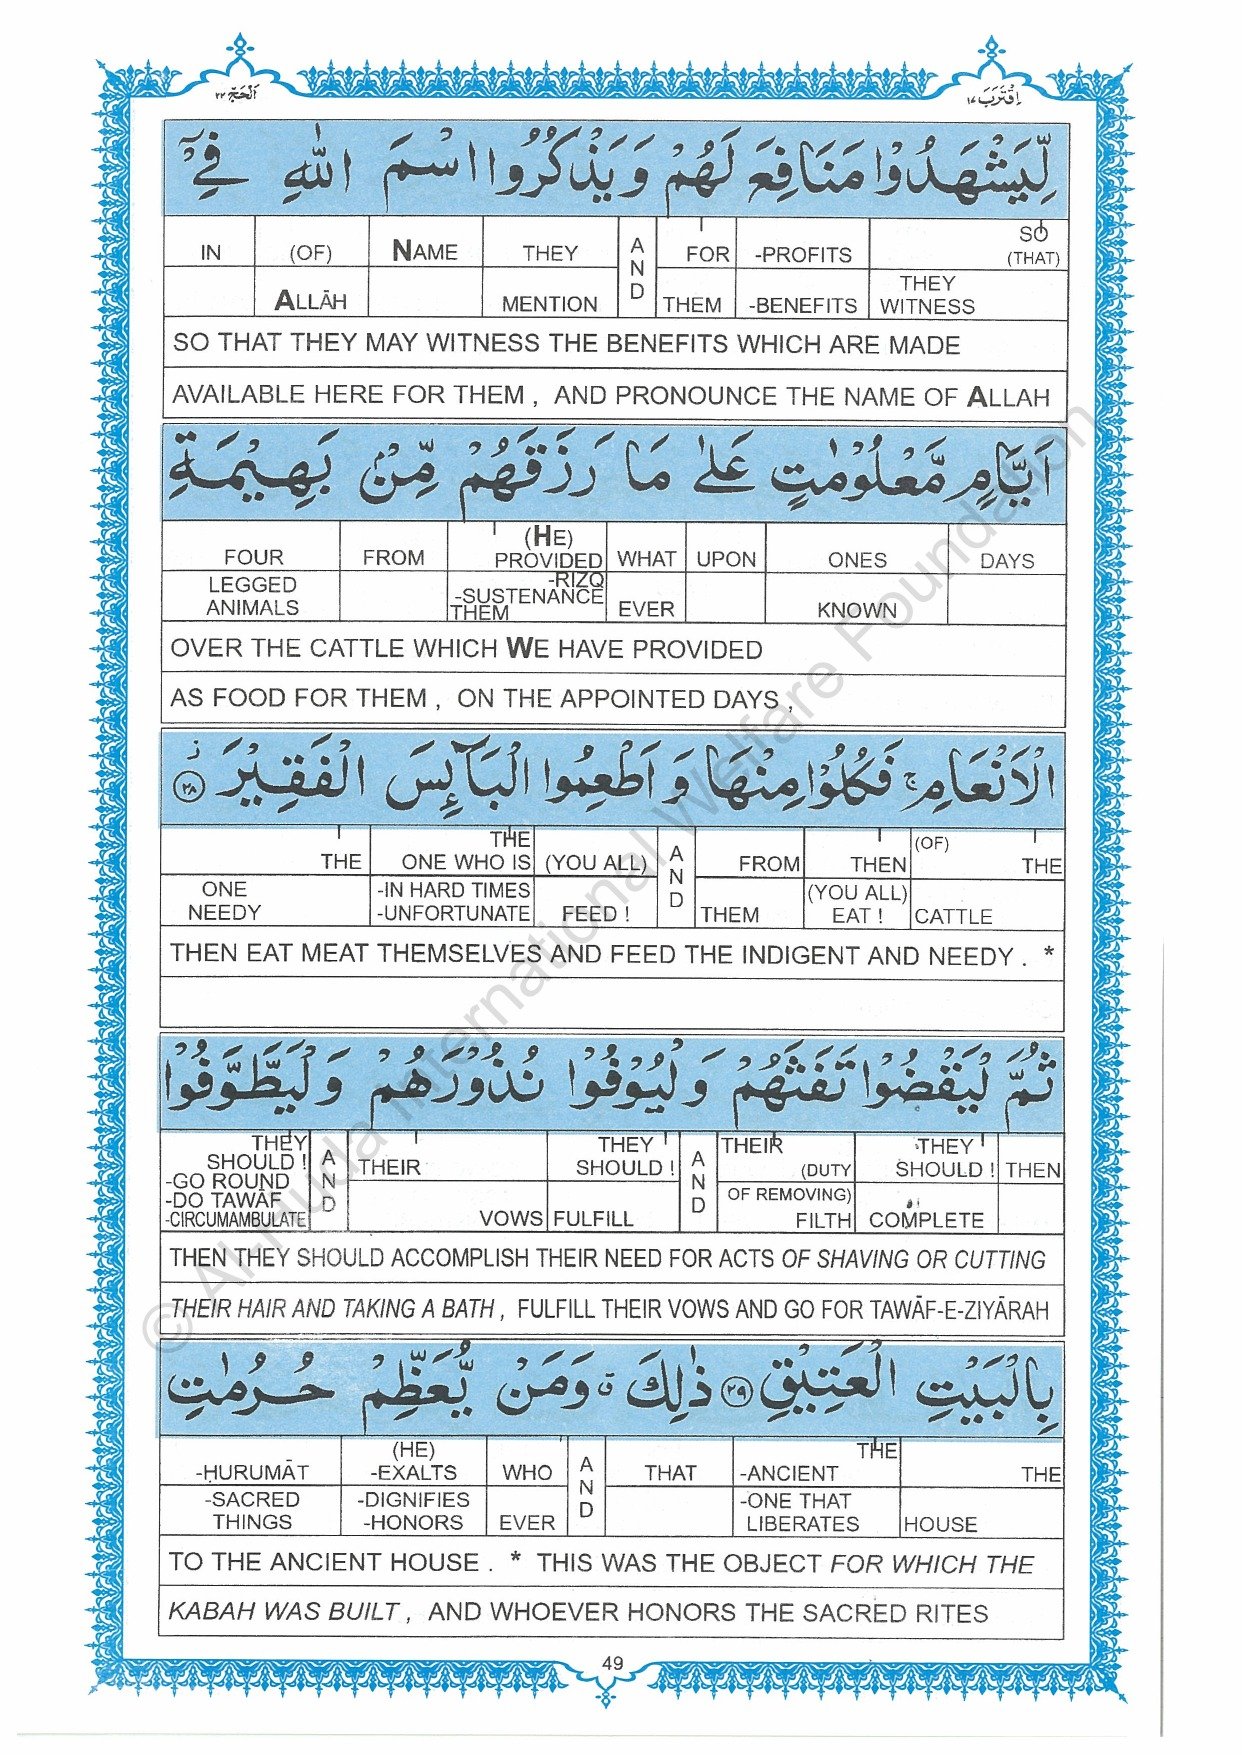 اَلْحَجّ ٢٢
اِقْتَرَبَ ١٧
لِّيَشْهَدُوْا مَنَافِعَ لَهُمْ وَيَذْكُرُوا اسْمَ اللّٰهِ فِيْۤ
IN (OF) NAME THEY AND FOR -PROFITS SO (THAT)
ALLĀH MENTION THEM -BENEFITS THEY WITNESS
SO THAT THEY MAY WITNESS THE BENEFITS WHICH ARE MADE
AVAILABLE HERE FOR THEM , AND PRONOUNCE THE NAME OF ALLAH
اَيَّامٍ مَّعْلُوْمٰتٍ عَلٰى مَا رَزَقَهُمْ مِّنْۢ بَهِيْمَةِ
FOUR FROM (HE) PROVIDED WHAT UPON ONES DAYS
LEGGED ANIMALS -RIZQ -SUSTENANCE THEM EVER KNOWN
OVER THE CATTLE WHICH WE HAVE PROVIDED
AS FOOD FOR THEM , ON THE APPOINTED DAYS ,
الْاَنْعَامِ ۚ فَكُلُوْا مِنْهَا وَ اَطْعِمُوا الْبَآئِسَ الْفَقِيْرَ ۫ ﴿٢٨﴾
THE THE ONE WHO IS (YOU ALL) AND FROM THEN (OF) THE
ONE NEEDY -IN HARD TIMES -UNFORTUNATE FEED ! THEM (YOU ALL) EAT ! CATTLE
THEN EAT MEAT THEMSELVES AND FEED THE INDIGENT AND NEEDY . *
ثُمَّ لْيَقْضُوْا تَفَثَهُمْ وَلْيُوْفُوْا نُذُوْرَهُمْ وَلْيَطَّوَّفُوْا
THEY SHOULD ! AND THEIR THEY SHOULD ! AND THEIR (DUTY THEY SHOULD ! THEN
-GO ROUND -DO TAWĀF -CIRCUMAMBULATE VOWS FULFILL OF REMOVING) FILTH COMPLETE
THEN THEY SHOULD ACCOMPLISH THEIR NEED FOR ACTS OF SHAVING OR CUTTING
THEIR HAIR AND TAKING A BATH , FULFILL THEIR VOWS AND GO FOR TAWĀF-E-ZIYĀRAH
بِالْبَيْتِ الْعَتِيْقِ ﴿٢٩﴾ ذٰلِكَ ۗ وَمَنْ يُّعَظِّمْ حُرُمٰتِ
-ḤURUMĀT (HE) -EXALTS WHO AND THAT THE -ANCIENT THE
-SACRED THINGS -DIGNIFIES -HONORS EVER -ONE THAT LIBERATES HOUSE
TO THE ANCIENT HOUSE . * THIS WAS THE OBJECT FOR WHICH THE
KABAH WAS BUILT , AND WHOEVER HONORS THE SACRED RITES
49
© Al-Huda International Welfare Foundation